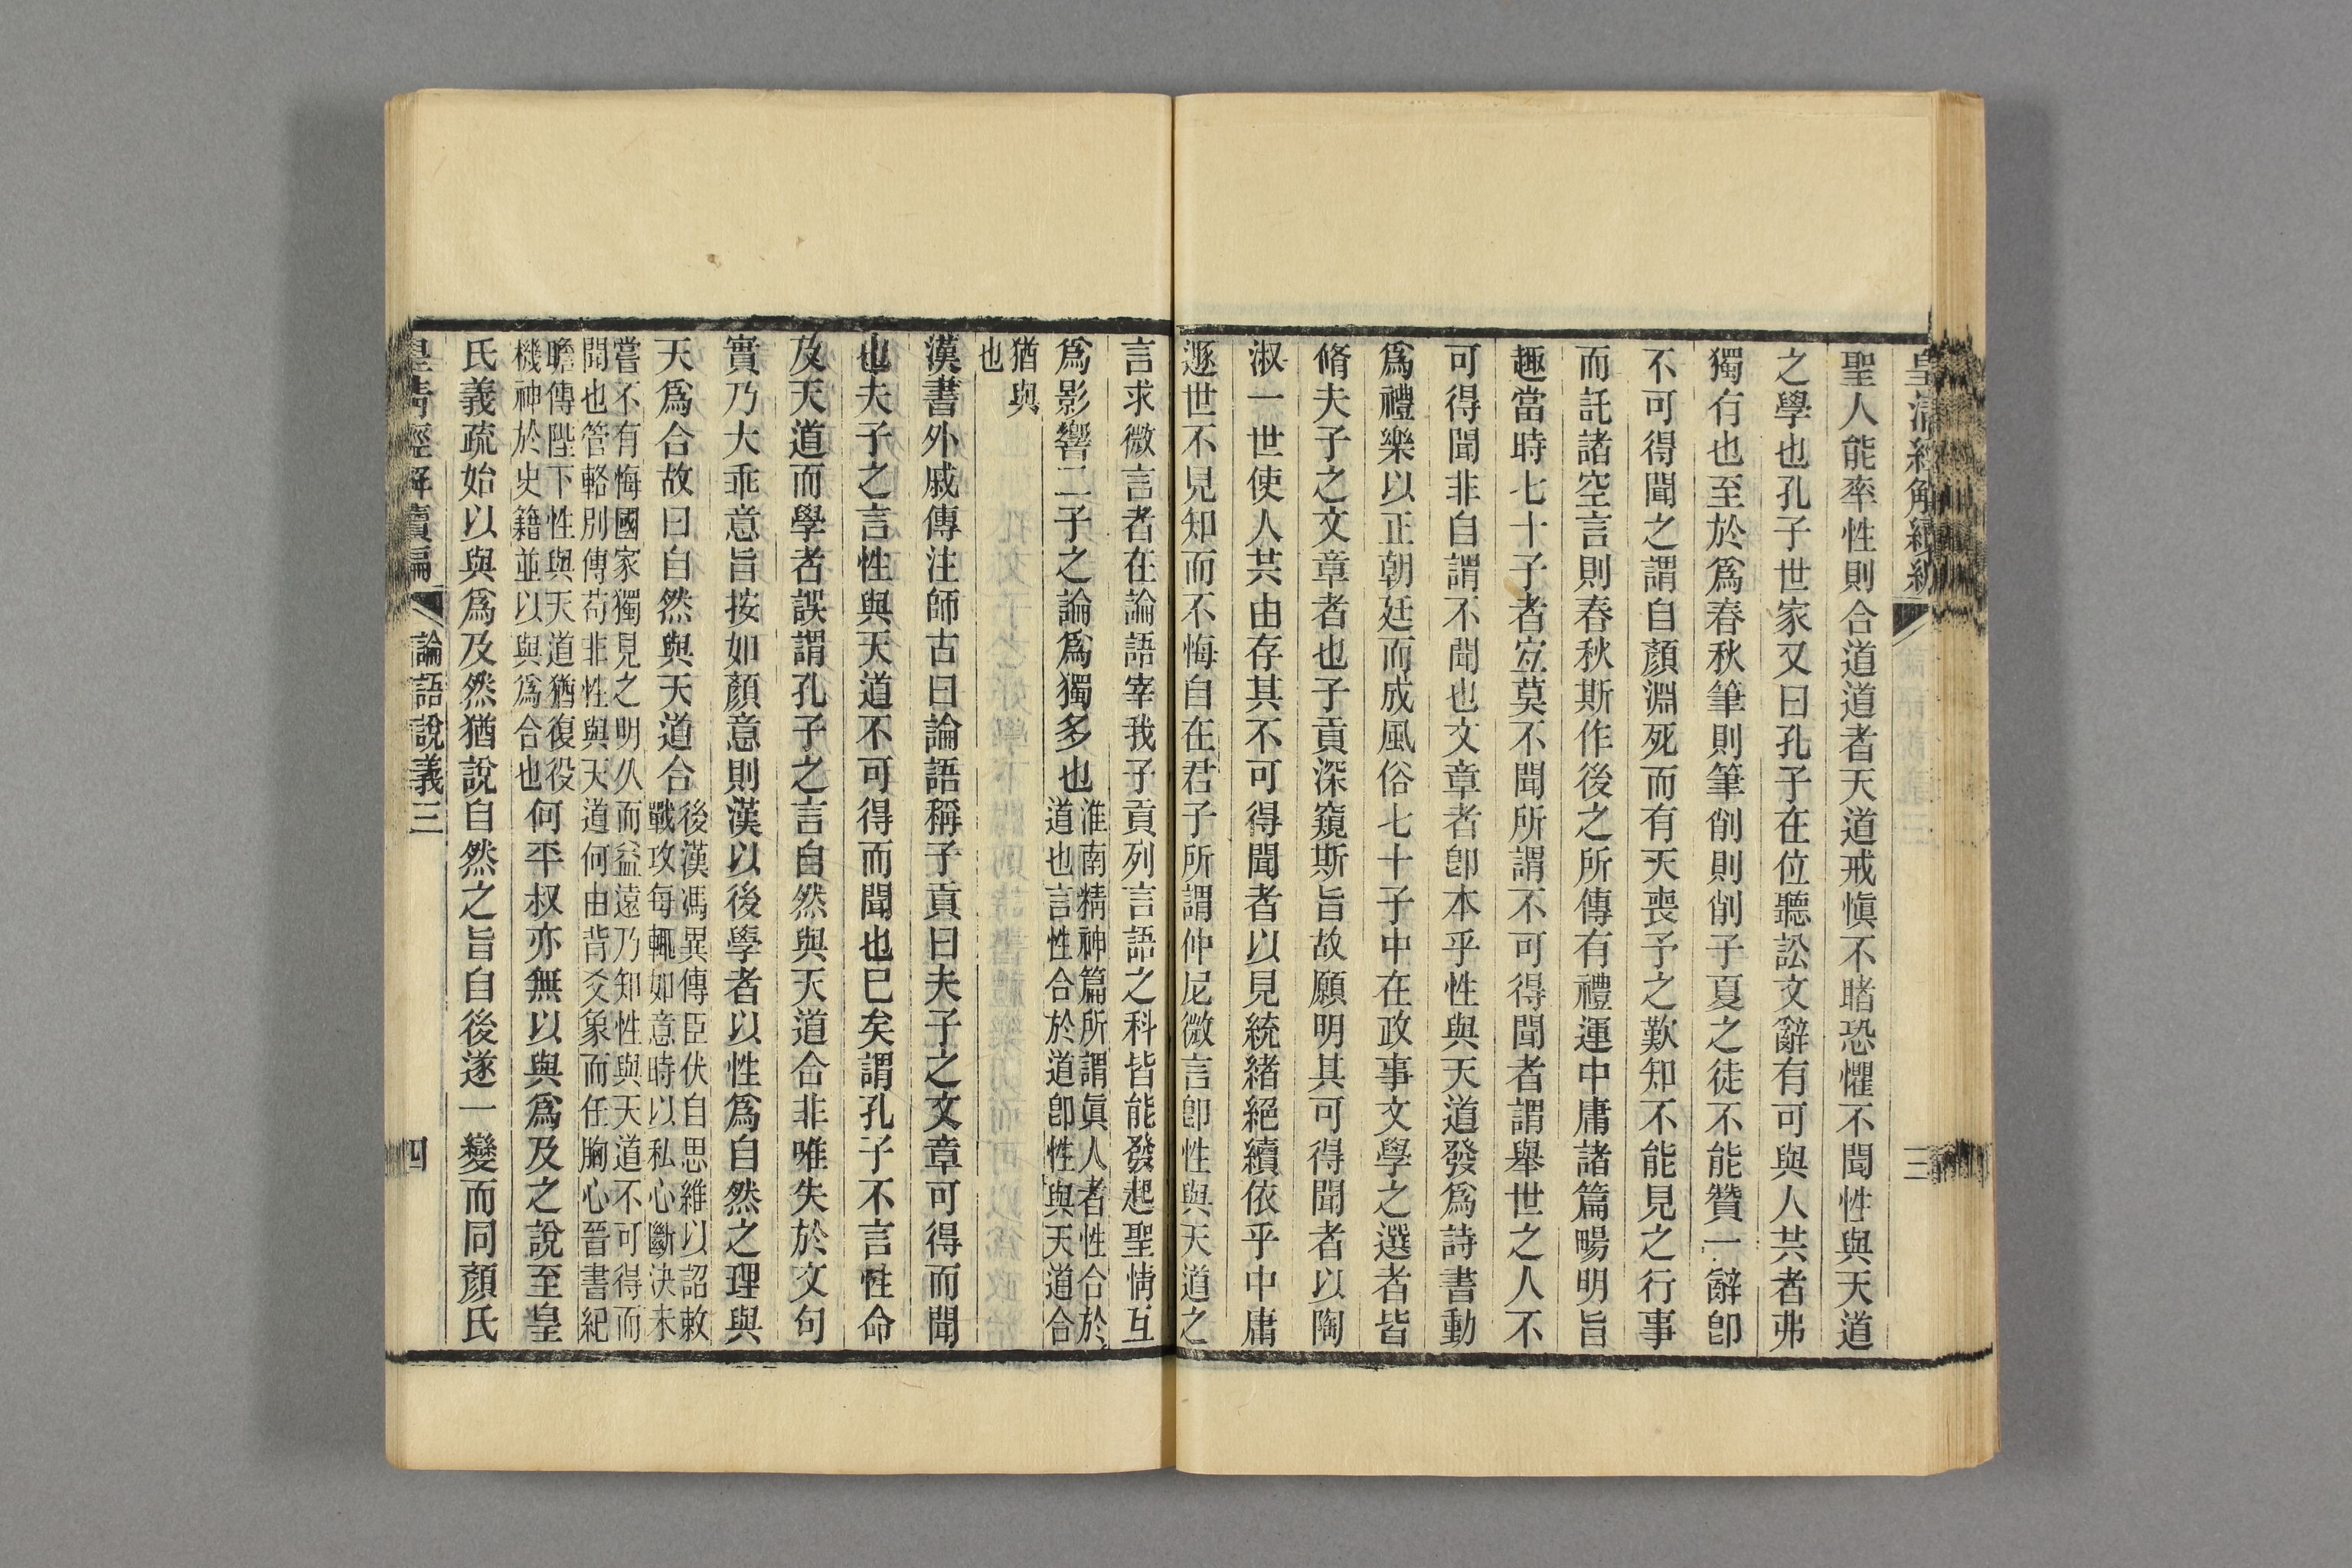 皇清經解續編
三
聖人能率性則合道道者天道戒愼不睹恐懼不聞性與天道
之學也孔子世家又曰孔子在位聽訟文辭有可與人共者弗
獨有也至於爲春秋筆則筆削則削子夏之徒不能贊一辭卽
不可得聞之謂自顏淵死而有天喪予之歎知不能見之行事
而託諸空言則春秋斯作後之所傳有禮運中庸諸篇暢明旨
趣當時七十子者宜莫不聞所謂不可得聞者謂舉世之人不
可得聞非自謂不聞也文章者卽本乎性與天道發爲詩書動
爲禮樂以正朝廷而成風俗七十子中在政事文學之選者皆
脩夫子之文章者也子貢深窺斯旨故願明其可得聞者以陶
淑一世使人共由存其不可得聞者以見統緒絕續依乎中庸
遯世不見知而不悔自在君子所謂仲尼微言卽性與天道之
言求微言者在論語宰我子貢列言語之科皆能發起聖情互
爲影響二子之論爲獨多也
淮南精神篇所謂眞人者性合於
道也言性合於道卽性與天道合
猶與
也
漢書外戚傳注師古曰論語稱子貢曰夫子之文章可得而聞
也夫子之言性與天道不可得而聞也已矣謂孔子不言性命
及天道而學者誤謂孔子之言自然與天道合非唯失於文句
實乃大乖意旨按如顏意則漢以後學者以性爲自然之理與
天爲合故曰自然與天道合
後漢馮異傳臣伏自思維以詔敕
戰攻每輒如意時以私心斷決未
嘗不有悔國家獨見之明久而益遠乃知性與天道不可得而
聞也管輅別傳苟非性與天道何由背爻象而任胸心晉書紀
瞻傳陛下性與天道猶復役
機神於史籍並以與爲合也
何平叔亦無以與爲及之說至皇
氏義疏始以與爲及然猶說自然之旨自後遂一變而同顏氏
皇清經解續編
論語說義三
四